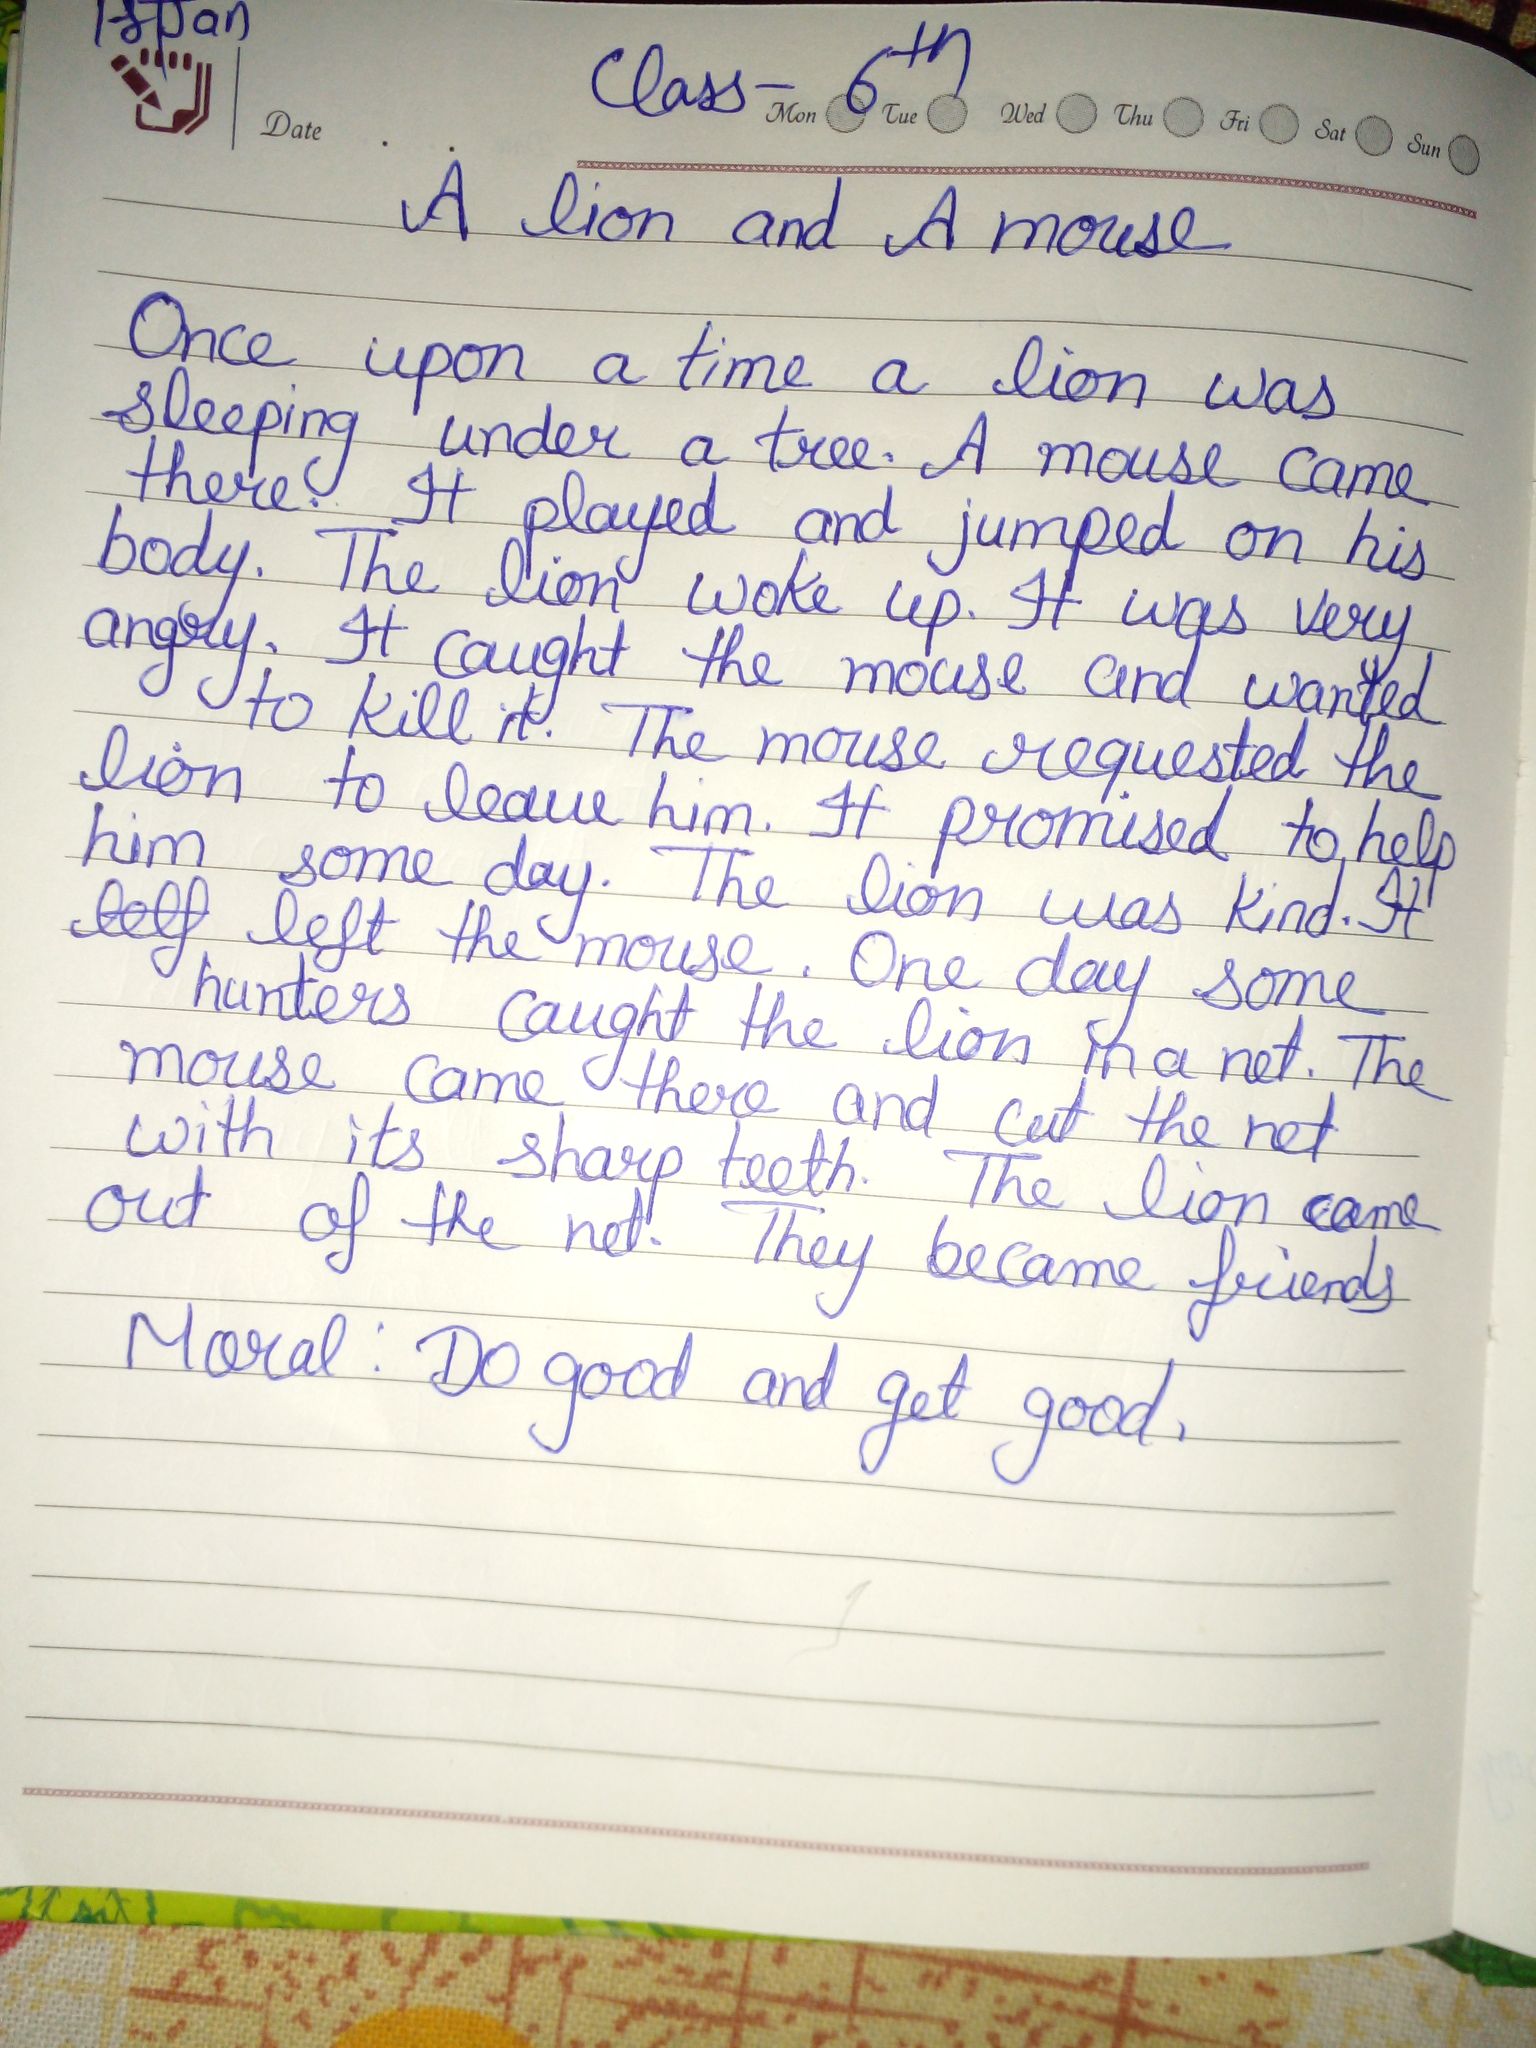 1st Jan
Class- 6th
Date
Mon Tue Wed Thu Fri Sat Sun
A lion and A mouse
Once upon a time a lion was
sleeping under a tree. A mouse came
there. It played and jumped on his
body. The lion woke up. It was very
angry. It caught the mouse and wanted
to kill it. The mouse requested the
lion to leave him. It promised to help
him some day. The lion was kind. It
left the mouse. One day some
hunters caught the lion in a net. The
mouse came there and cut the net
with its sharp teeth. The lion came
out of the net. They became friends
Moral: Do good and get good.